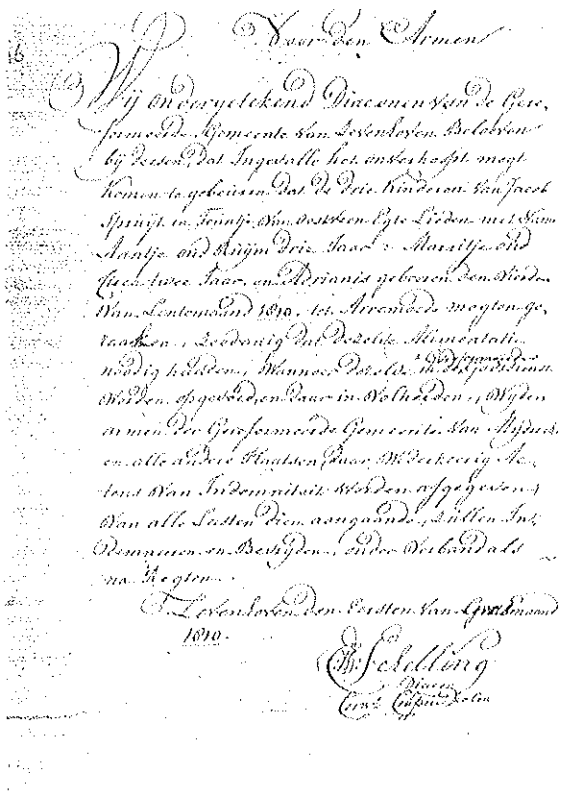 Voor den Armen
Wij ondergetekend Diaconen van de Gere-
formeerde Gemeente van Zevenhoven Beloven
bij deesen, dat Ingevalle het onverhoopt mogt
komen te gebeuren dat de drie Kinderen van Jacob
Spruijt en Teuntje van Oostveen Egte Lieden met name
Aantje oud Ruijm drie Jaar, Marritje oud
Circa twee Jaar, en Adrianis gebooren den Vierde
van Lentemaand 1810, tot Armoede mogten ge-
raaken, Zoodanig dat dezelve Alimentatie
noodig hadden, Wanneer dezelve in de Gereformeerde Godsdienst
Worden opgevoed en daar in Volharden, Wij den
armen der Gereformeerde Gemeente van Mijdrecht
en alle andere Plaatsen, daar Wederkeerig Ac-
tens van Indemniteit Worden afgegeven,
van alle Lasten dien aangaande, zullen In-
demneeren en Bevrijden, onder Verband als
na Regten.
Zevenhoven den Eersten van Grasmaand
1810.
Schelling
Diacon